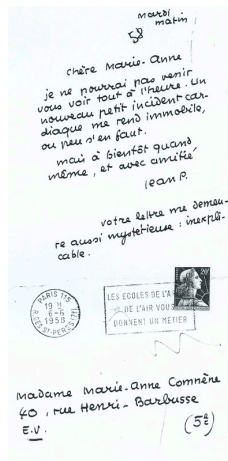 mardi
matin
58
Chère Marie-Anne
je ne pourrai pas venir
vous voir tout à l'heure. Un
nouveau petit incident car-
diaque me rend immobile,
ou peu s'en faut.
mais à bientôt quand
même, et avec amitié
Jean P.
votre lettre me demeu-
re aussi mystérieuse : inexpli-
cable.
PARIS 115
19 H
6-6
1958
R. DES STS-PERES (7e)
LES ECOLES DE L'A
DE L'AIR VOUS
DONNENT UN METIER
20F
Madame Marie-Anne Comnène
40, rue Henri-Barbusse
E.V. (5e)